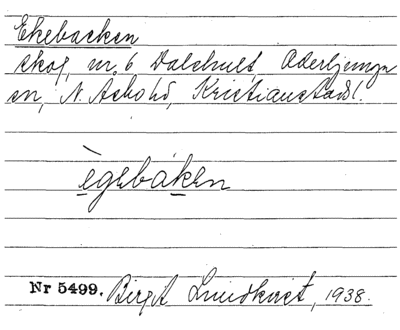 Ekebacken
skog, nr. 6 Dalshult, Oderljunga
sn, N. Åsbo hd, Kristianstads l.
ègebáken
Nr 5499. Birgit Lundkvist, 1938.